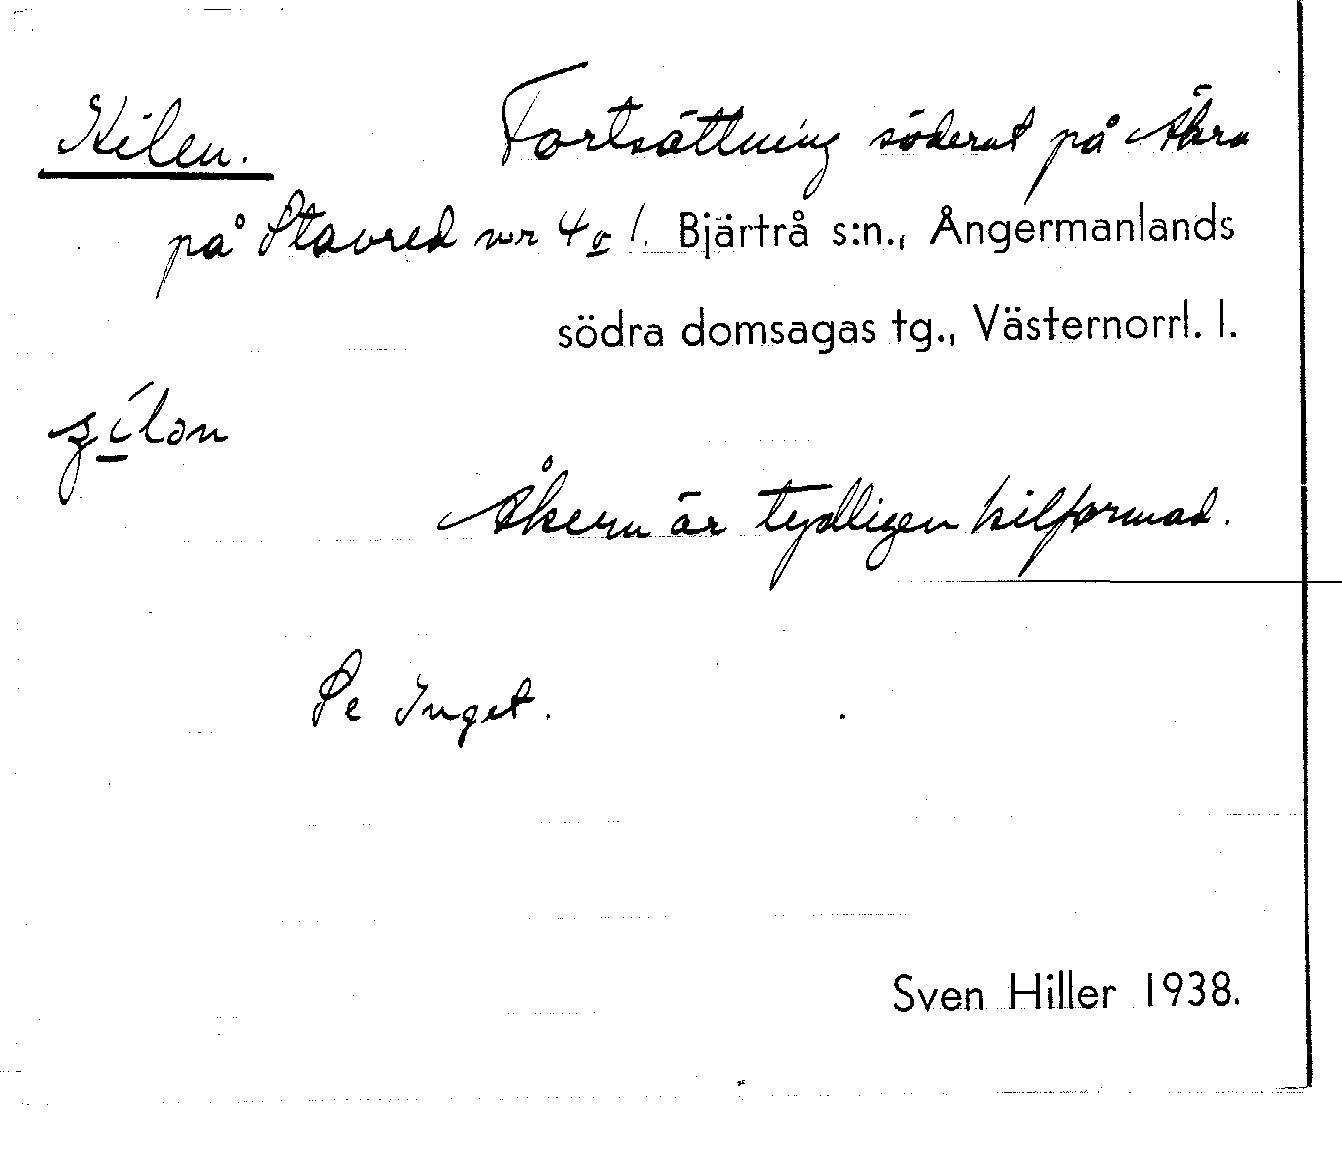 Kilen. Fortsättning söderut på Åkra
på Stavred nr 4 o 1. Bjärtrå s:n., Ångermanlands
södra domsagas tg., Västernorrl. l.
Åkern är tydligen kilformad.
Se Inget.
Sven Hiller 1938.